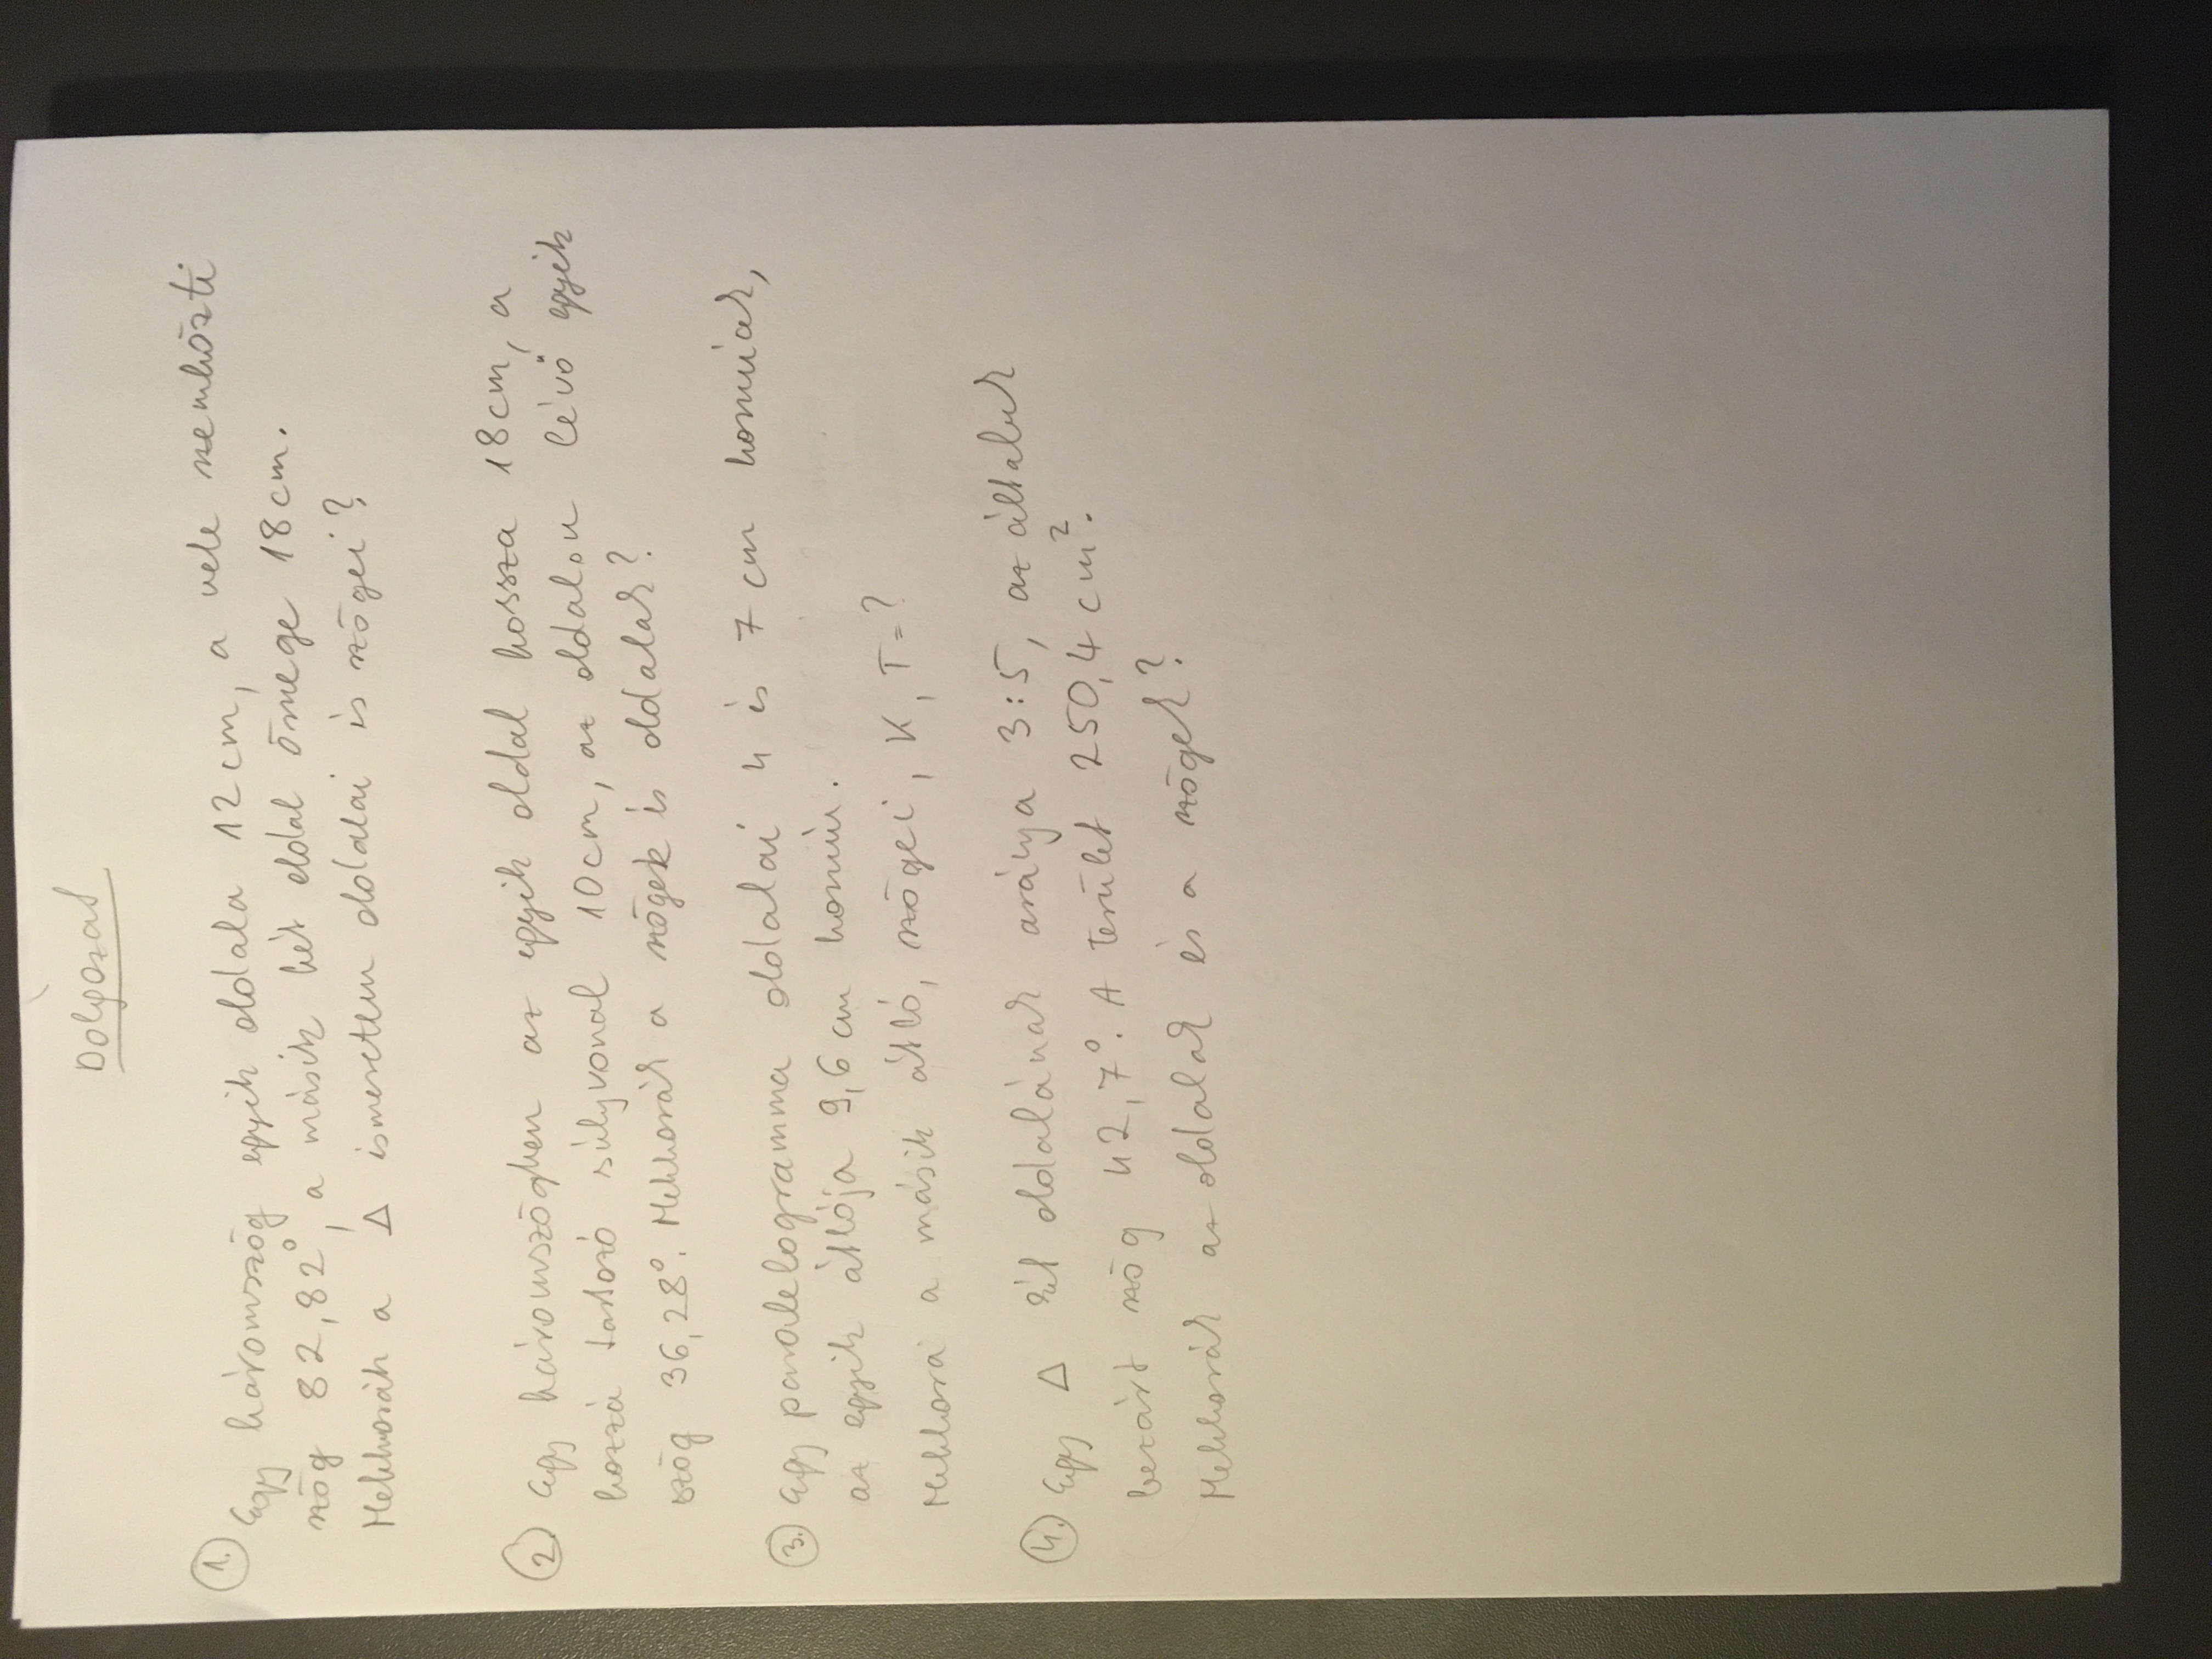 Dolgozat
1. Egy háromszög egyik oldala 12cm, a vele szemközti
szög 82,82°, a másik két oldal összege 18cm.
Mekkorák a Δ ismeretlen oldalai és szögei?
2. Egy háromszögben az egyik oldal hossza 18cm, a
hozzá tartozó súlyvonal 10cm, az oldalon lévő egyik
szög 36,28°. Mekkorák a szögek és oldalak?
3. Egy paralelogramma oldalai 4 és 7 cm hosszúak,
az egyik átlója 9,6 cm hosszú.
Mekkora a másik átló, szögei, K, T=?
4. Egy Δ két oldalának aránya 3:5, az általuk
bezárt szög 42,7°. A terület 250,4 cm².
Mekkorák az oldalak és a szögek?